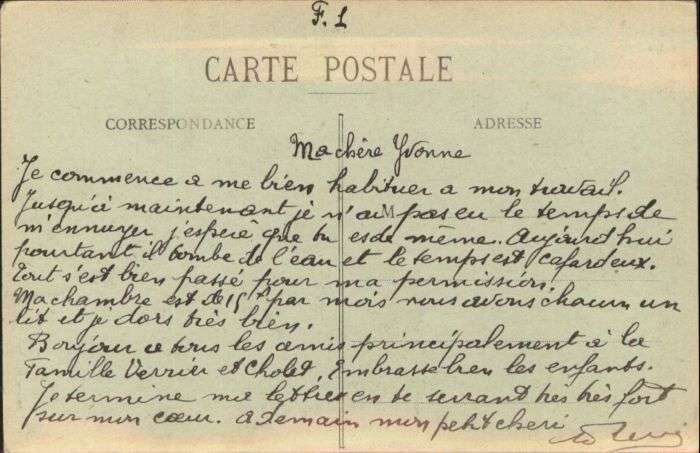 F. L
CARTE POSTALE
CORRESPONDANCE
ADRESSE
Ma chère Yvonne
Je commence a me bien habituer a mon travail.
Jusqu'à maintenant je n'ai M pas eu le temps de
m'ennuyer j'espère que tu es de même. Aujourd'hui
pourtant il tombe de l'eau et le temps est cafardeux.
Tout s'est bien passé pour ma permission.
Ma chambre est de 15f par mois nous avons chacun un
lit et je dors très bien.
Bonjour a tous les amis principalement à la
Famille Verrier et Cholet, Embrasse bien les enfants.
Je termine ma lettre en te serrant très très fort
sur mon cœur. a demain mon petit cheri